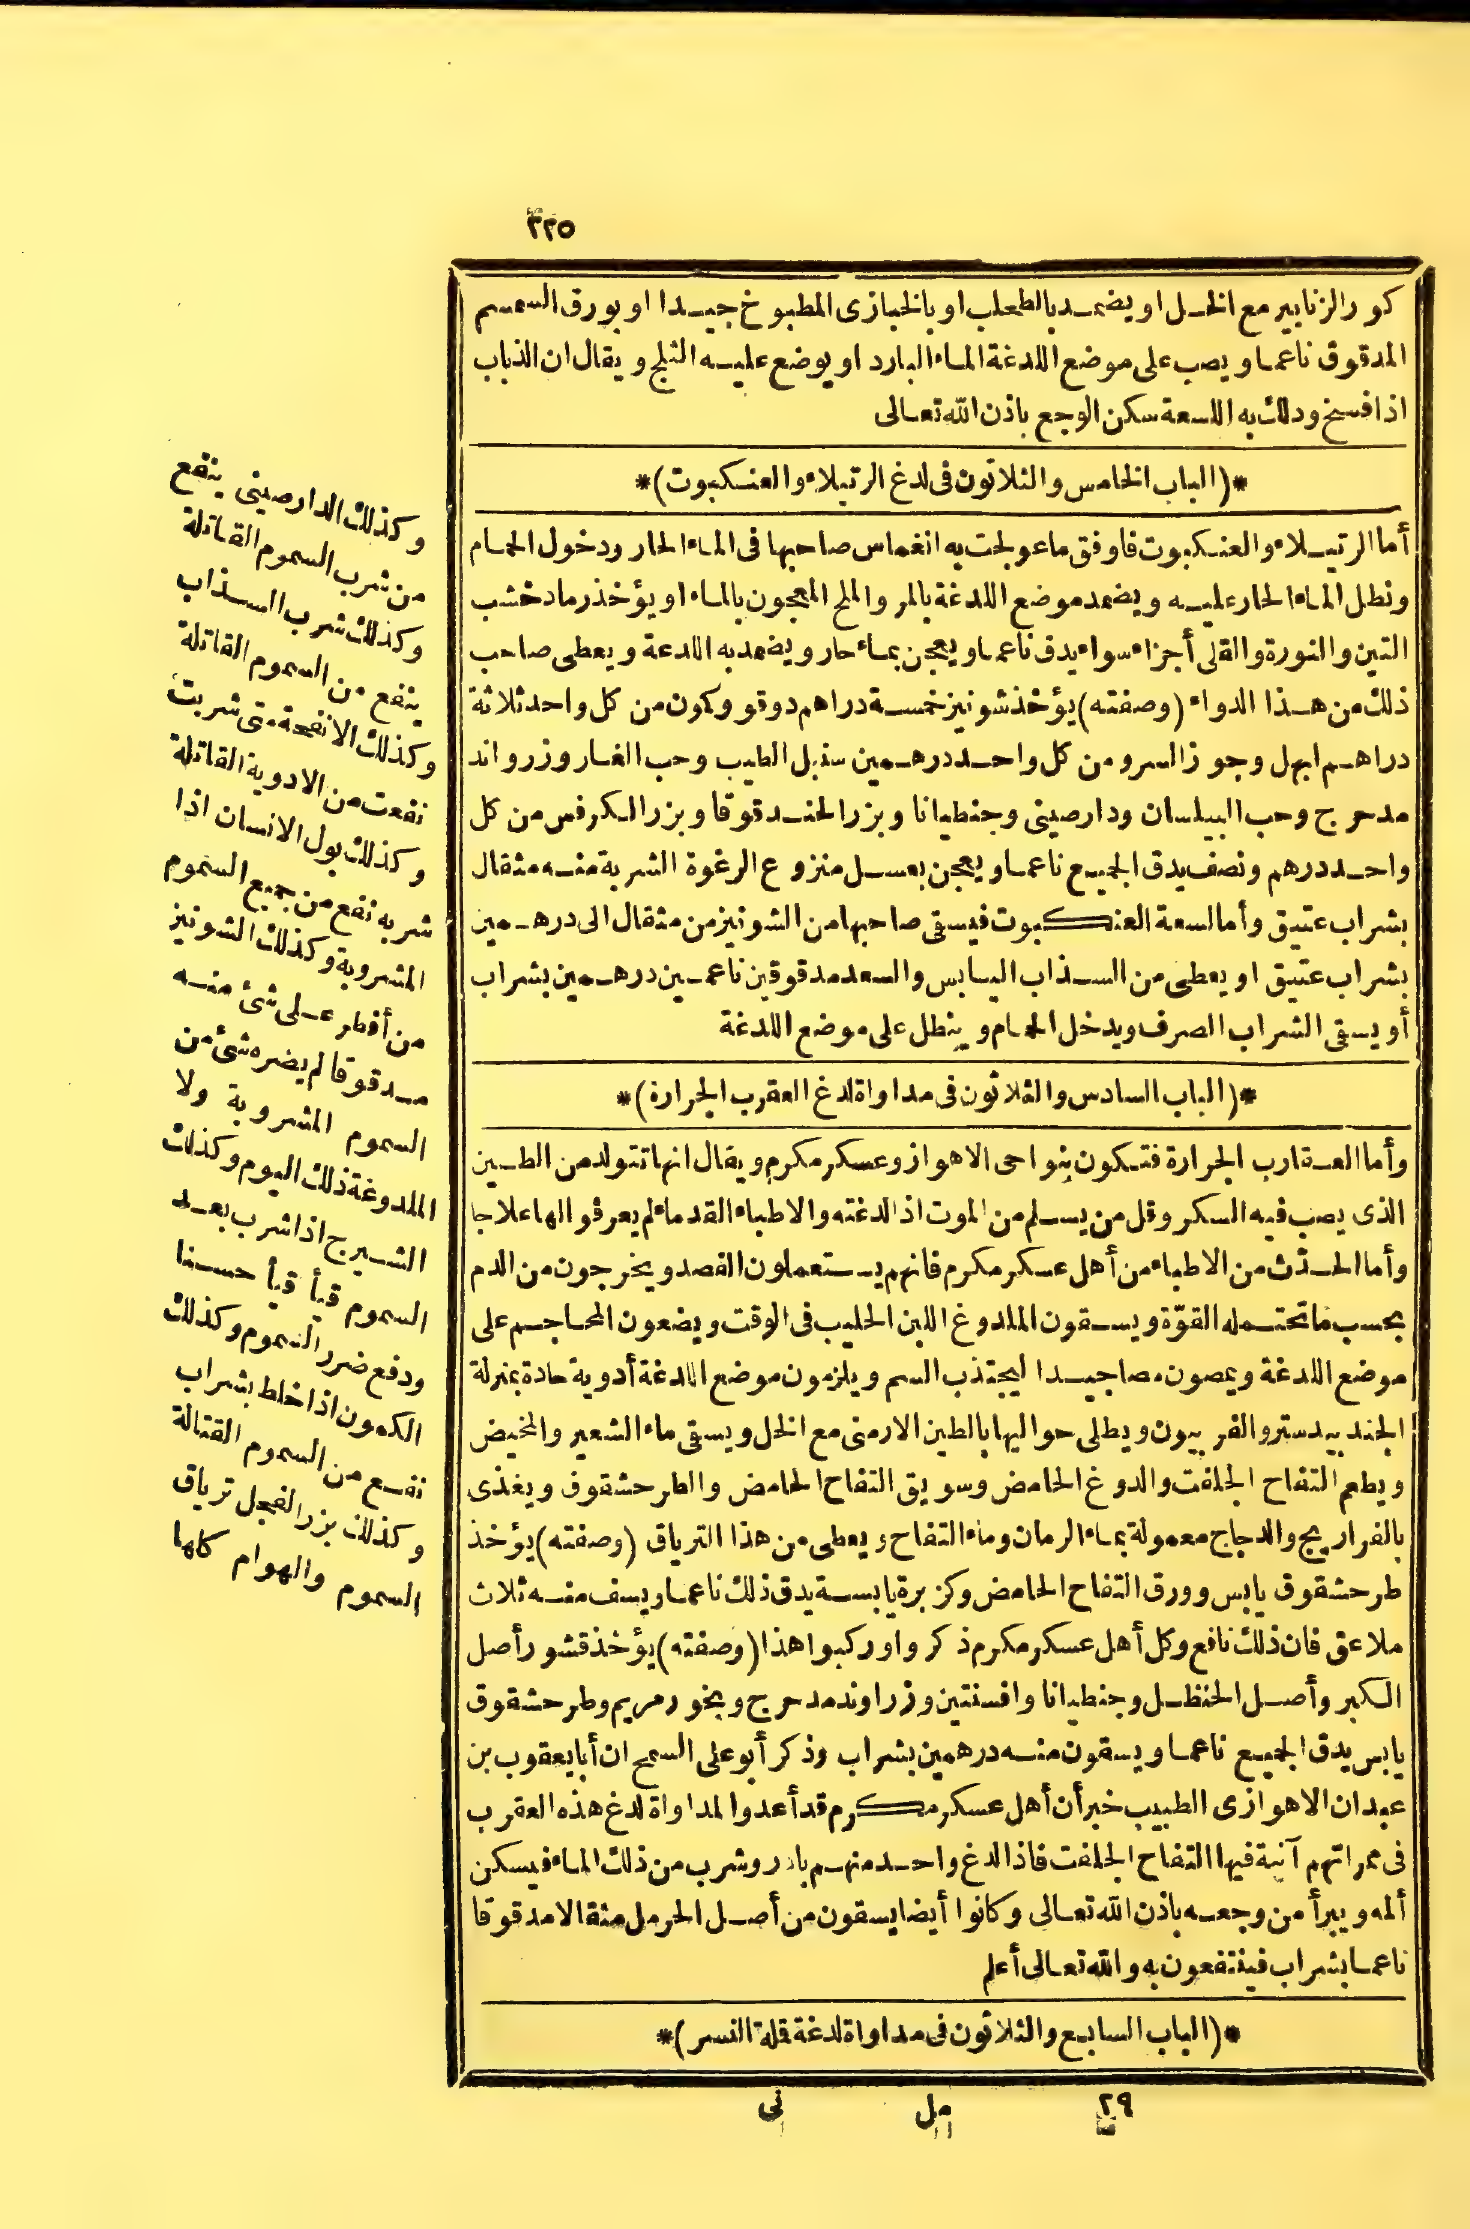 ٢٢٥
كور الزنابير مع الخل او يضمد بالطحلب او بالخبازى المطبوخ جيدا او بورق السمسم
المدقوق ناعما ويصب على موضع اللدغة الماء البارد او يوضع عليه الثلج ويقال ان الذباب
اذا فسخ ودلك به اللسعة سكن الوجع باذن الله تعالى
*(الباب الخامس والثلاثون فى لدغ الرتيلاء والعنكبوت)*
أما الرتيلاء والعنكبوت فاوفق ما عولجت به انغماس صاحبها فى الماء الحار ودخول الحمام
ونطل الماء الحار عليه ويضمد موضع اللدغة بالمر والملح المعجون بالماء او يؤخذ رماد خشب
التين والنورة والقلى أجزاء سواء يدق ناعما ويعجن بماء حار ويضمد به اللدغة ويعطى صاحب
ذلك من هذا الدواء (وصفته) يؤخذ شونيز خمسة دراهم دوقو وكمون من كل واحد ثلاثة
دراهم ابهل وجوز السرو من كل واحد درهمين سنبل الطيب وحب الغار وزرواند
مدحرج وحب البيلسان ودارصينى وجنطيانا وبزر الحندقوقا وبزر الكرفس من كل
واحد درهم ونصف يدق الجميع ناعما ويعجن بعسل منزوع الرغوة الشربة منه مثقال
بشراب عتيق وأما لسعة العنكبوت فيسقى صاحبها من الشونيز من مثقال الى درهمين
بشراب عتيق او يعطى من السذاب اليابس والسعد مدقوقين ناعمين درهمين بشراب
أو يسقى الشراب الصرف ويدخل الحمام وينطل على موضع اللدغة
*(الباب السادس والثلاثون فى مداواة لدغ العقرب الجرارة)*
وأما العقارب الجرارة فتكون بنواحى الاهواز وعسكر مكرم ويقال انها تتولد من الطين
الذى يصب فيه السكر وقل من يسلم من الموت اذا لدغته والاطباء القدماء لم يعرفوا لها علاجا
وأما الحدث من الاطباء من أهل عسكر مكرم فانهم يستعملون الفصد ويخرجون من الدم
بحسب ما تحتمله القوّة ويسقون الملدوغ اللبن الحليب فى الوقت ويضعون المحاجم على
موضع اللدغة ويمصون مصا جيدا ليجتذب السم ويلزمون موضع اللدغة أدوية حادة بمنزلة
الجندبيدستر والفربيون ويطلى حواليها بالطين الارمنى مع الخل ويسقى ماء الشعير والمخيض
ويطعم التفاح الجلفت والدوغ الحامض وسويق التفاح الحامض والطرحشقوق ويغذى
بالفراريج والدجاج معمولة بماء الرمان وماء التفاح ويعطى من هذا الترياق (وصفته) يؤخذ
طرحشقوق يابس وورق التفاح الحامض وكزبرة يابسة يدق ذلك ناعما ويسف منه ثلاث
ملاعق فان ذلك نافع وكل أهل عسكر مكرم ذكروا وركبوا هذا (وصفته) يؤخذ قشور أصل
الكبر وأصل الحنظل وجنطيانا وافسنتين وزراوند مدحرج وبخور مريم وطرحشقوق
يابس يدق الجميع ناعما ويسقون منه درهمين بشراب وذكر أبو على السمح ان أبا يعقوب بن
عبدان الاهوازى الطبيب خبر أن أهل عسكر مكرم قد أعدوا لمداواة لدغ هذه العقرب
فى ممراتهم آنية فيها التفاح الجلفت فاذا لدغ واحد منهم بادر وشرب من ذلك الماء فيسكن
ألمه ويبرأ من وجعه باذن الله تعالى وكانوا أيضا يسقون من أصل الحرمل مثقالا مدقوقا
ناعما بشراب فينتفعون به والله تعالى أعلم
*(الباب السابع والثلاثون فى مداواة لدغة قملة النسر)*
٢٩ مل نى
وكذلك الدارصينى ينفع
من شرب السموم القاتلة
وكذلك شرب السذاب
ينفع من السموم القاتلة
وكذلك الانفحة متى شربت
نفعت من الادوية القاتلة
وكذلك بول الانسان اذا
شربه نفع من جميع السموم
المشروبة وكذلك الشونيز
من أفطر على شئ منه
مدقوقا لم يضره شئ من
السموم المشروبة ولا
الملدوغة ذلك اليوم وكذلك
الشيرج اذا شرب بعد
السموم قيأ قيأ حسنا
ودفع ضرر السموم وكذلك
الكمون اذا خلط بشراب
نفع من السموم القتالة
وكذلك بزر الفجل ترياق
السموم والهوام كلها